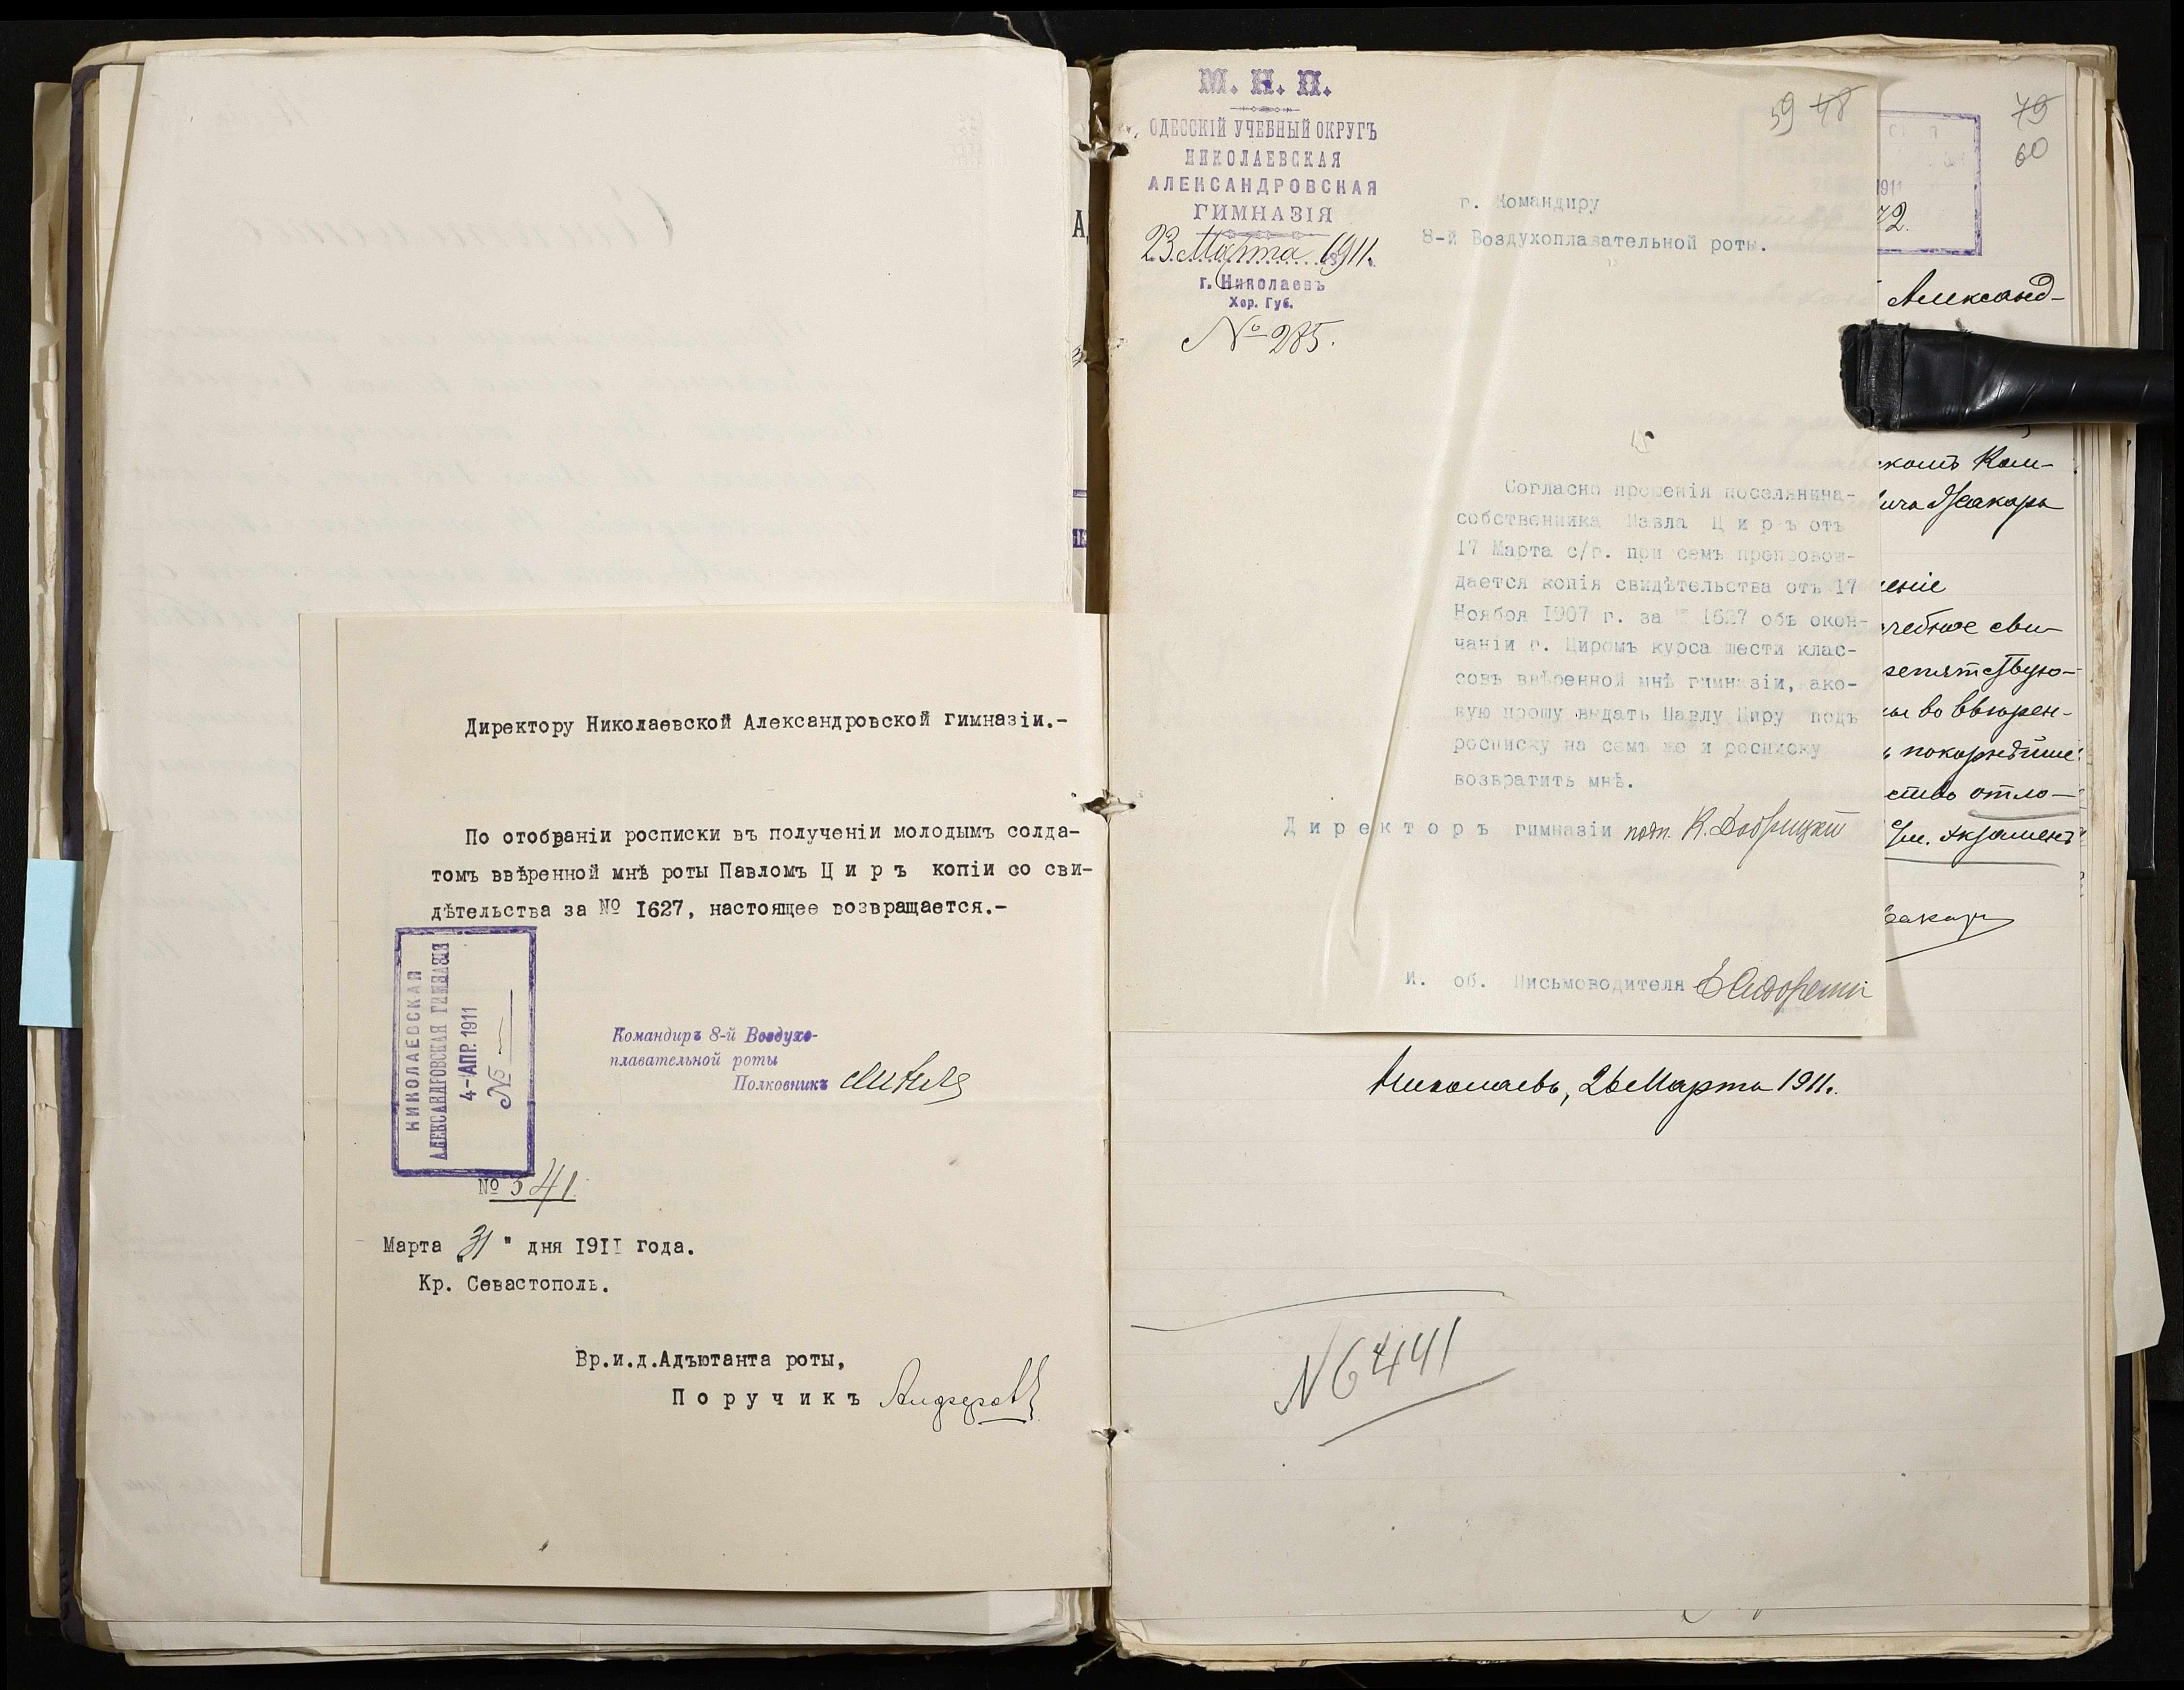 Директору Николаевской Александровской гимназіи.-
По отобраніи росписки въ полученіи молодымъ солда-
томъ ввѣренной мнѣ роты Павломъ Ц и р ъ копіи со сви-
дѣтельства за № 1627, настоящее возвращается.-
НИКОЛАЕВСКАЯ
АЛЕКСАНДРОВСКАЯ ГИМНАЗІЯ
4-АПР. 1911
№
Командиръ 8-й Воздухо-
плавательной роты
Полковникъ
№ 541
Марта „31" дня 1911 года.
Кр. Севастополь.
Вр.и.д.Адъютанта роты,
П о р у ч и к ъ
М. Н. П.
ОДЕССКІЙ УЧЕБНЫЙ ОКРУГЪ
НИКОЛАЕВСКАЯ
АЛЕКСАНДРОВСКАЯ
ГИМНАЗІЯ
23 Марта 1911.
г. Николаевъ
Хер. Губ.
№ 285.
59 48
г. Командиру
8-й Воздухоплавательной роты.
Согласно прошенія поселянина-
собственника Павла Ц и р ъ отъ
17 Марта с/г. при семъ препровож-
дается копія свидѣтельства отъ 17
Ноября 1907 г. за № 1627 объ окон-
чаніи г. Циромъ курса шести клас-
совъ ввѣренной мнѣ гимназіи, како-
вую прошу выдать Павлу Циру подъ
росписку на семъ же и росписку
возвратить мнѣ.
Д и р е к т о р ъ гимназіи подп. К. Дворицкій
И. об. Письмоводителя
79
60
1911
72.
Александ-
скомъ Ком-
вича Макара
ленія
чебное сви-
репятствую-
ы во ввѣрен-
покорнѣйше
ство отло-
экзаменъ
Николаевъ, 26 Марта 1911г.
N 6441